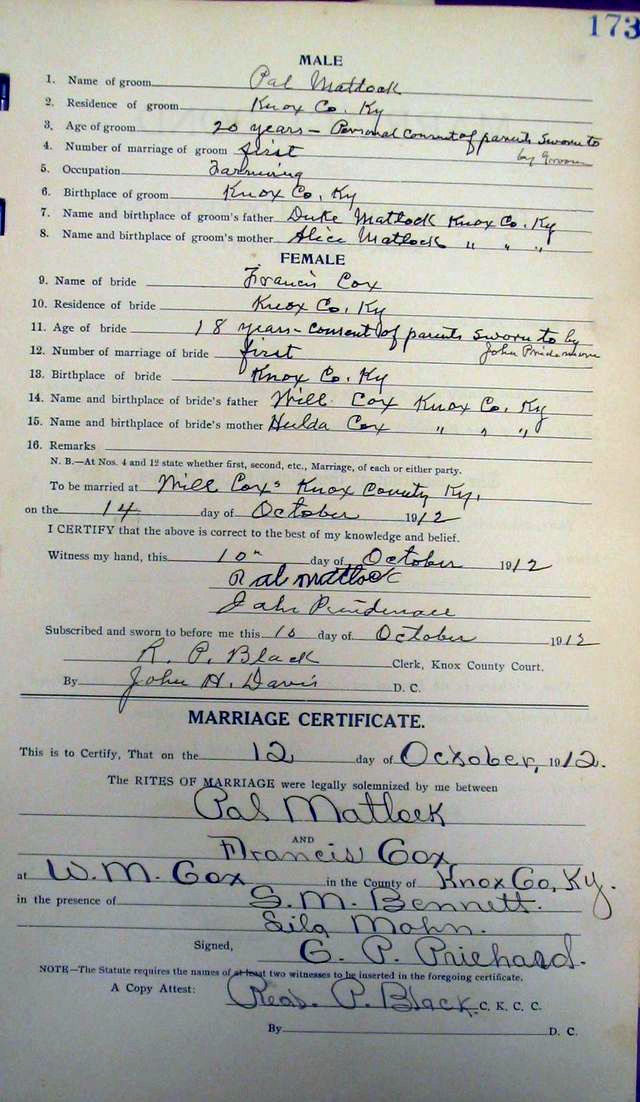 173
MALE
1. Name of groom Pal Matlock
2. Residence of groom Knox Co. Ky
3. Age of groom 20 years – Personal consent of parents sworn to
by Groom
4. Number of marriage of groom first
5. Occupation Farming
6. Birthplace of groom Knox Co. Ky
7. Name and birthplace of groom's father Duke Matlock Knox Co. Ky
8. Name and birthplace of groom's mother Alice Matlock " " "
FEMALE
9. Name of bride Francis Cox
10. Residence of bride Knox Co. Ky
11. Age of bride 18 years – consent of parents sworn to by
12. Number of marriage of bride first John
13. Birthplace of bride Knox Co. Ky
14. Name and birthplace of bride's father Will Cox Knox Co. Ky
15. Name and birthplace of bride's mother Hulda Cox " " "
16. Remarks
N. B.—At Nos. 4 and 12 state whether first, second, etc., Marriage, of each or either party.
To be married at Will Cox's Knox County Ky.
on the 14 day of October 1912
I CERTIFY that the above is correct to the best of my knowledge and belief.
Witness my hand, this 10" day of October 1912
Pal Matlock
John
Subscribed and sworn to before me this 10 day of October 1912
R. P. Black Clerk, Knox County Court.
By John H. Davis D. C.
MARRIAGE CERTIFICATE.
This is to Certify, That on the 12 day of October, 1912.
The RITES OF MARRIAGE were legally solemnized by me between
Pal Matlock
AND
Francis Cox
at W. M. Cox in the County of Knox Co, Ky.
in the presence of S. M. Bennett.
Sila Mohn.
Signed, G. P. Prichard.
NOTE—The Statute requires the names of at least two witnesses to be inserted in the foregoing certificate.
A Copy Attest: P. Black C. K. C. C.
By D. C.